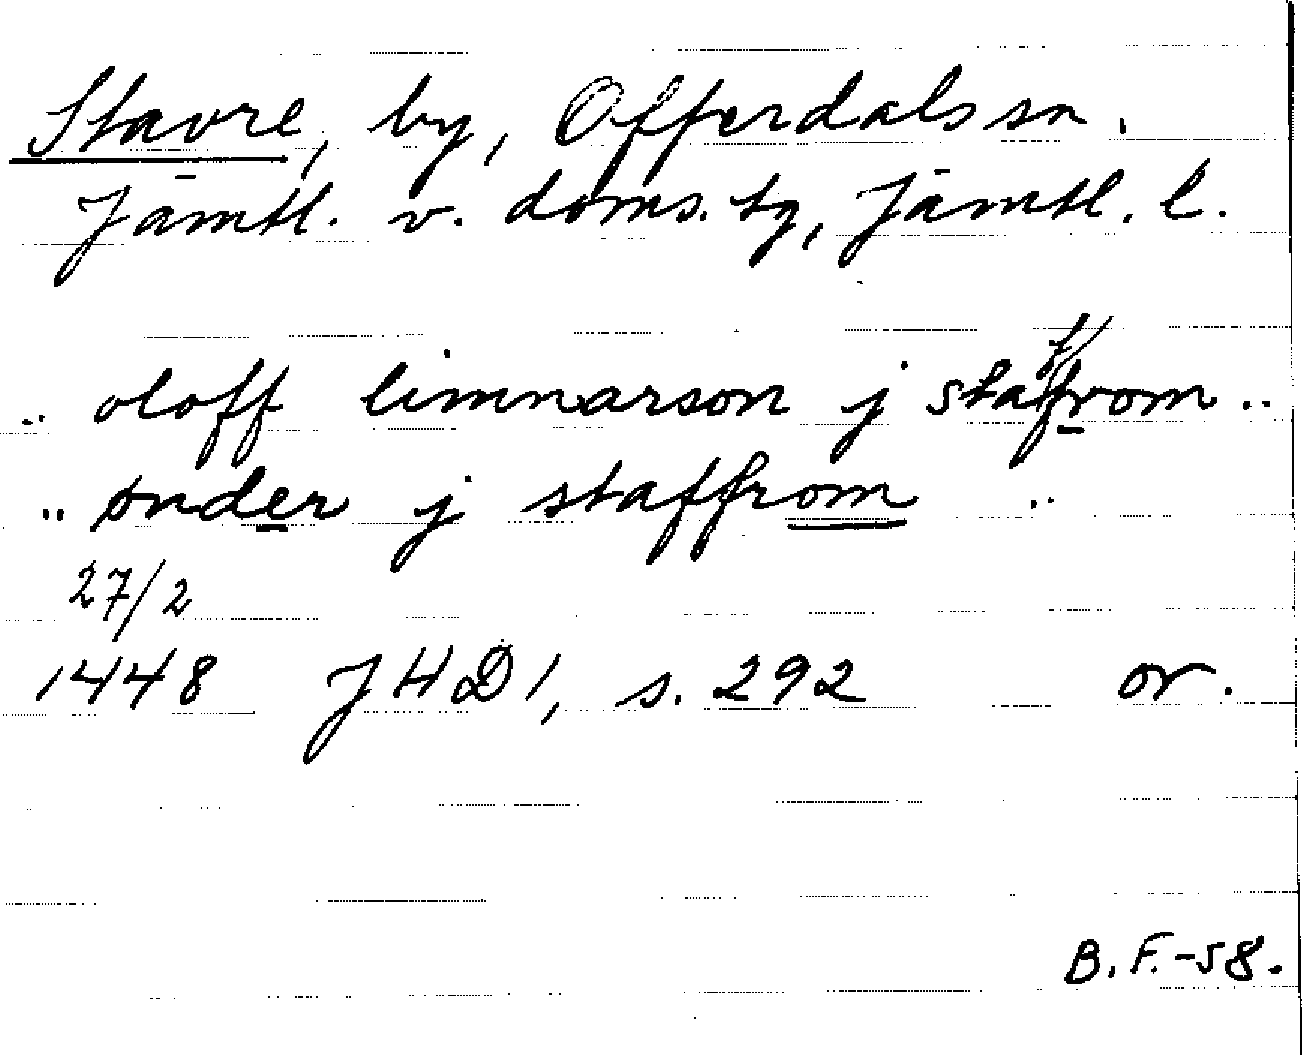 Stavre, by, Offerdals sn.
Jämtl. v. doms. tg, Jämtl. l.
.. oloff linnarson j staffrom ..
.. ønder j staffrom ..
27/2
1448 JHD1, s. 292 or.
B.F.-58.